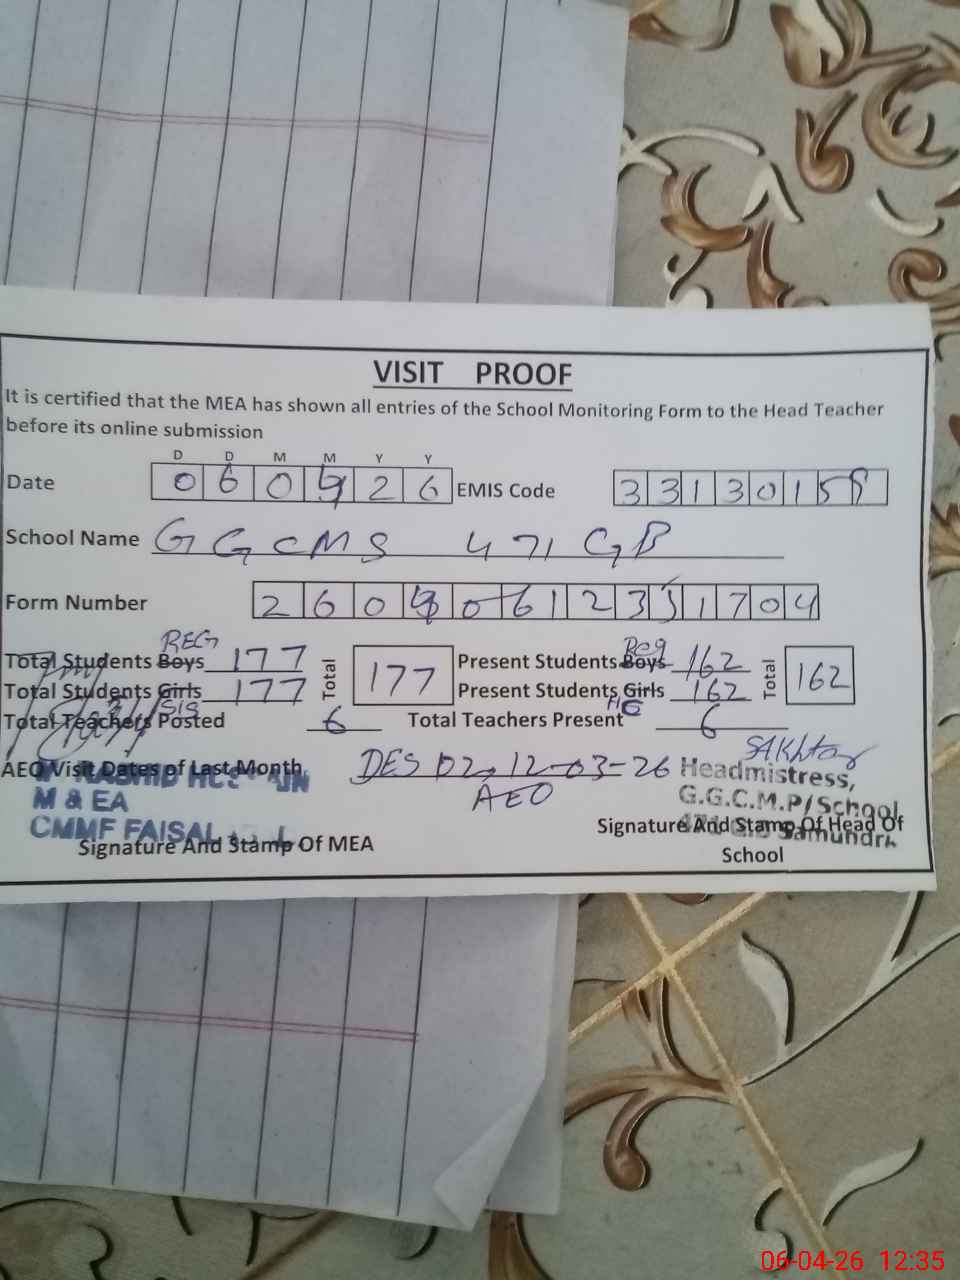 VISIT PROOF
It is certified that the MEA has shown all entries of the School Monitoring Form to the Head Teacher
before its online submission
D D M M Y Y
Date 0 6 0 4 2 6 EMIS Code 3 3 1 3 0 1 5
School Name GGCMS 471 GB
Form Number 2 6 0 4 0 6 1 2 3 5 1 7 0 4
REG Reg
Total Students Boys 177 Total 177 Present Students Boys 162 Total 162
Total Students Girls 177 Present Students Girls 162
SIS
Total Teachers Posted 6 Total Teachers Present 6
SAkhtar
AEO Visit Dates of Last Month DES 02, 12-03-26 Headmistress,
AEO
M & EA G.G.C.M.P/School
CMMF FAISAL Samundri
Signature And Stamp Of MEA Signature And Stamp Of Head Of
School
06-04-26 12:35